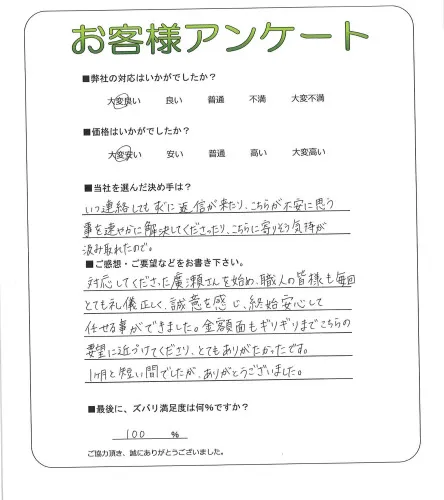 お客様アンケート
■弊社の対応はいかがでしたか?
大変良い 良い 普通 不満 大変不満
■価格はいかがでしたか?
大変安い 安い 普通 高い 大変高い
■当社を選んだ決め手は?
いつ連絡しても すぐに返信が来たり、こちらが不安に思う
事を速やかに解決してくださったり、こちらに寄りそう気持が
汲み取れたので。
■ご感想・ご要望などをお書き下さい。
対応してくださった廣瀬さんを始め、職人の皆様も毎回
とても礼儀正しく、誠意を感じ、終始安心して
任せる事ができました。金額面もギリギリまでこちらの
要望に近づけてくださり、とてもありがたかったです。
1ヶ月と短い間でしたが、ありがとうございました。
■最後に、ズバリ満足度は何%ですか?
100 %
ご協力頂き、誠にありがとうございました。